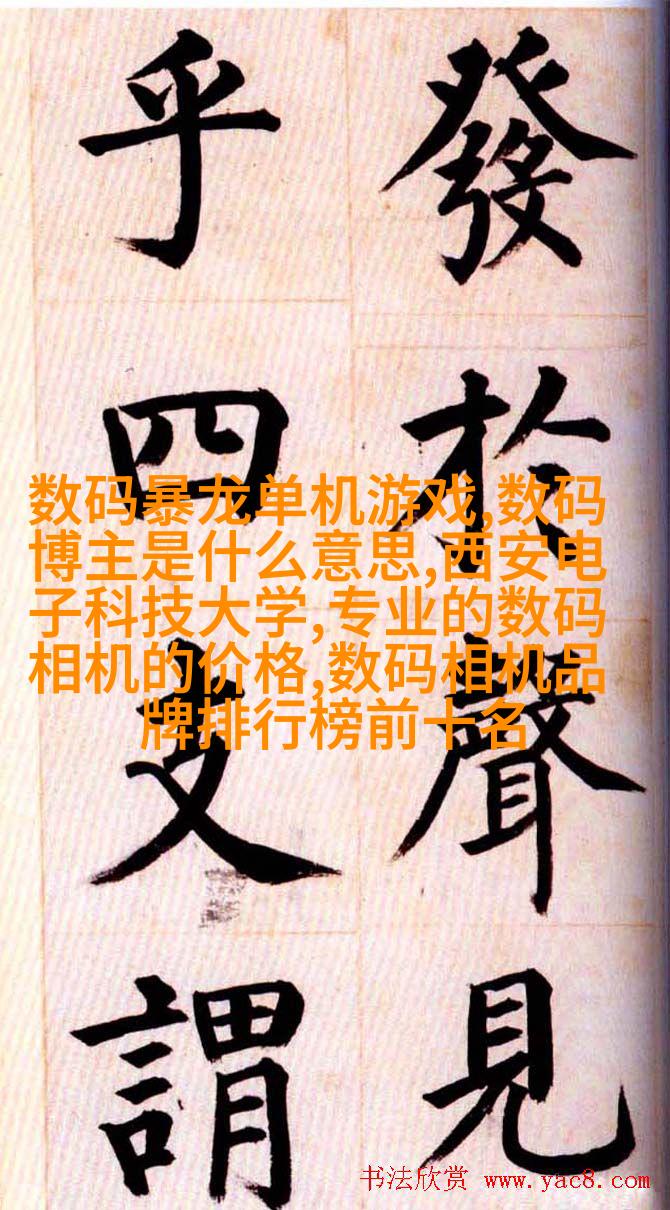 發於聲見
乎四支謂
数码暴龙单机游戏,数码
博主是什么意思,西安电
子科技大学,专业的数码
相机的价格,数码相机品
牌排行榜前十名
书法欣赏 www.yac8.com